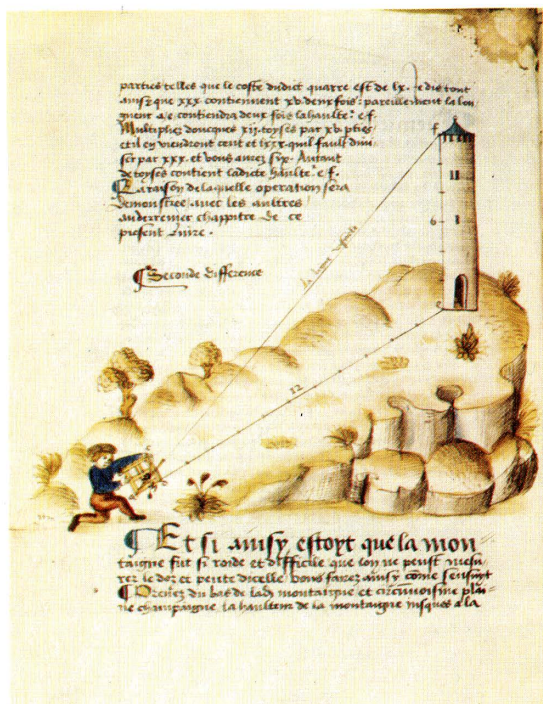 parties telles que le coste dudict quarre est de lx. Je dis tout
ainsi que xxx contiennent xv deux fois: pareillement la lon
gueur a,e contiendra deux fois la haulte. e,f.
Multipliez doncques xij toyses par xv pties
et il en viendront cent et lxxx quil fault divi
ser par xxx. et vous aurez six. Autant
de toyses contient ladicte haulte. e,f.
La raison de laquelle operation sera
demonstree avec les aultres
au derrenier chappitre de ce
present Livre.
f
II
6
I
la ligne visuelle
Seconde difference
e
12
c
Et si ainsy estoyt que la mon
taigne fut si roide et difficile que lon ne peust mesu
rer le doz et pente dicelle vous farez ainsy come sensuyt
Prenez du bas de lad montaigne et circunvoisine plai
ne champaigne la haulteur de la montaigne jusques a la